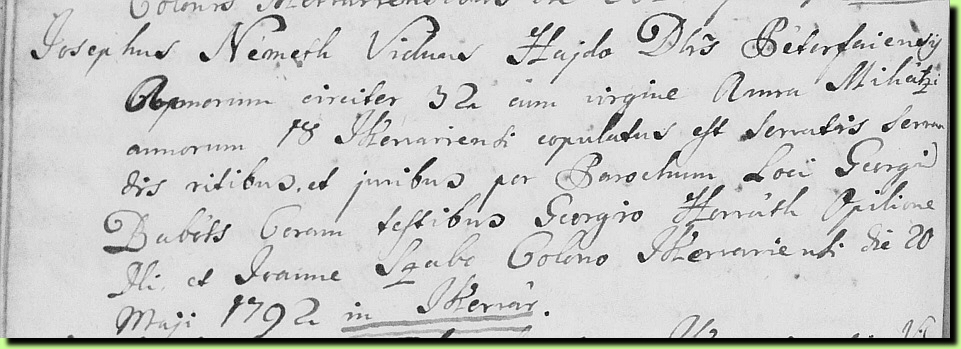 Colonis Ikervariensibus die
Josephus Németh Viduus Hajdo Dlis Péterfaiensis
Annorum circiter 32 cum virgine Anna Mihátzi
annorum 18 Ikervariensi copulatus est servatis servan
dis ritibus, et juribus per Parochum Loci Georgiū
Babóts Coram testibus Georgio Horváth Opilione
Dli, et Joanne Szabo Colono Ikervariensi die 20
Maji 1792 in Ikervár.